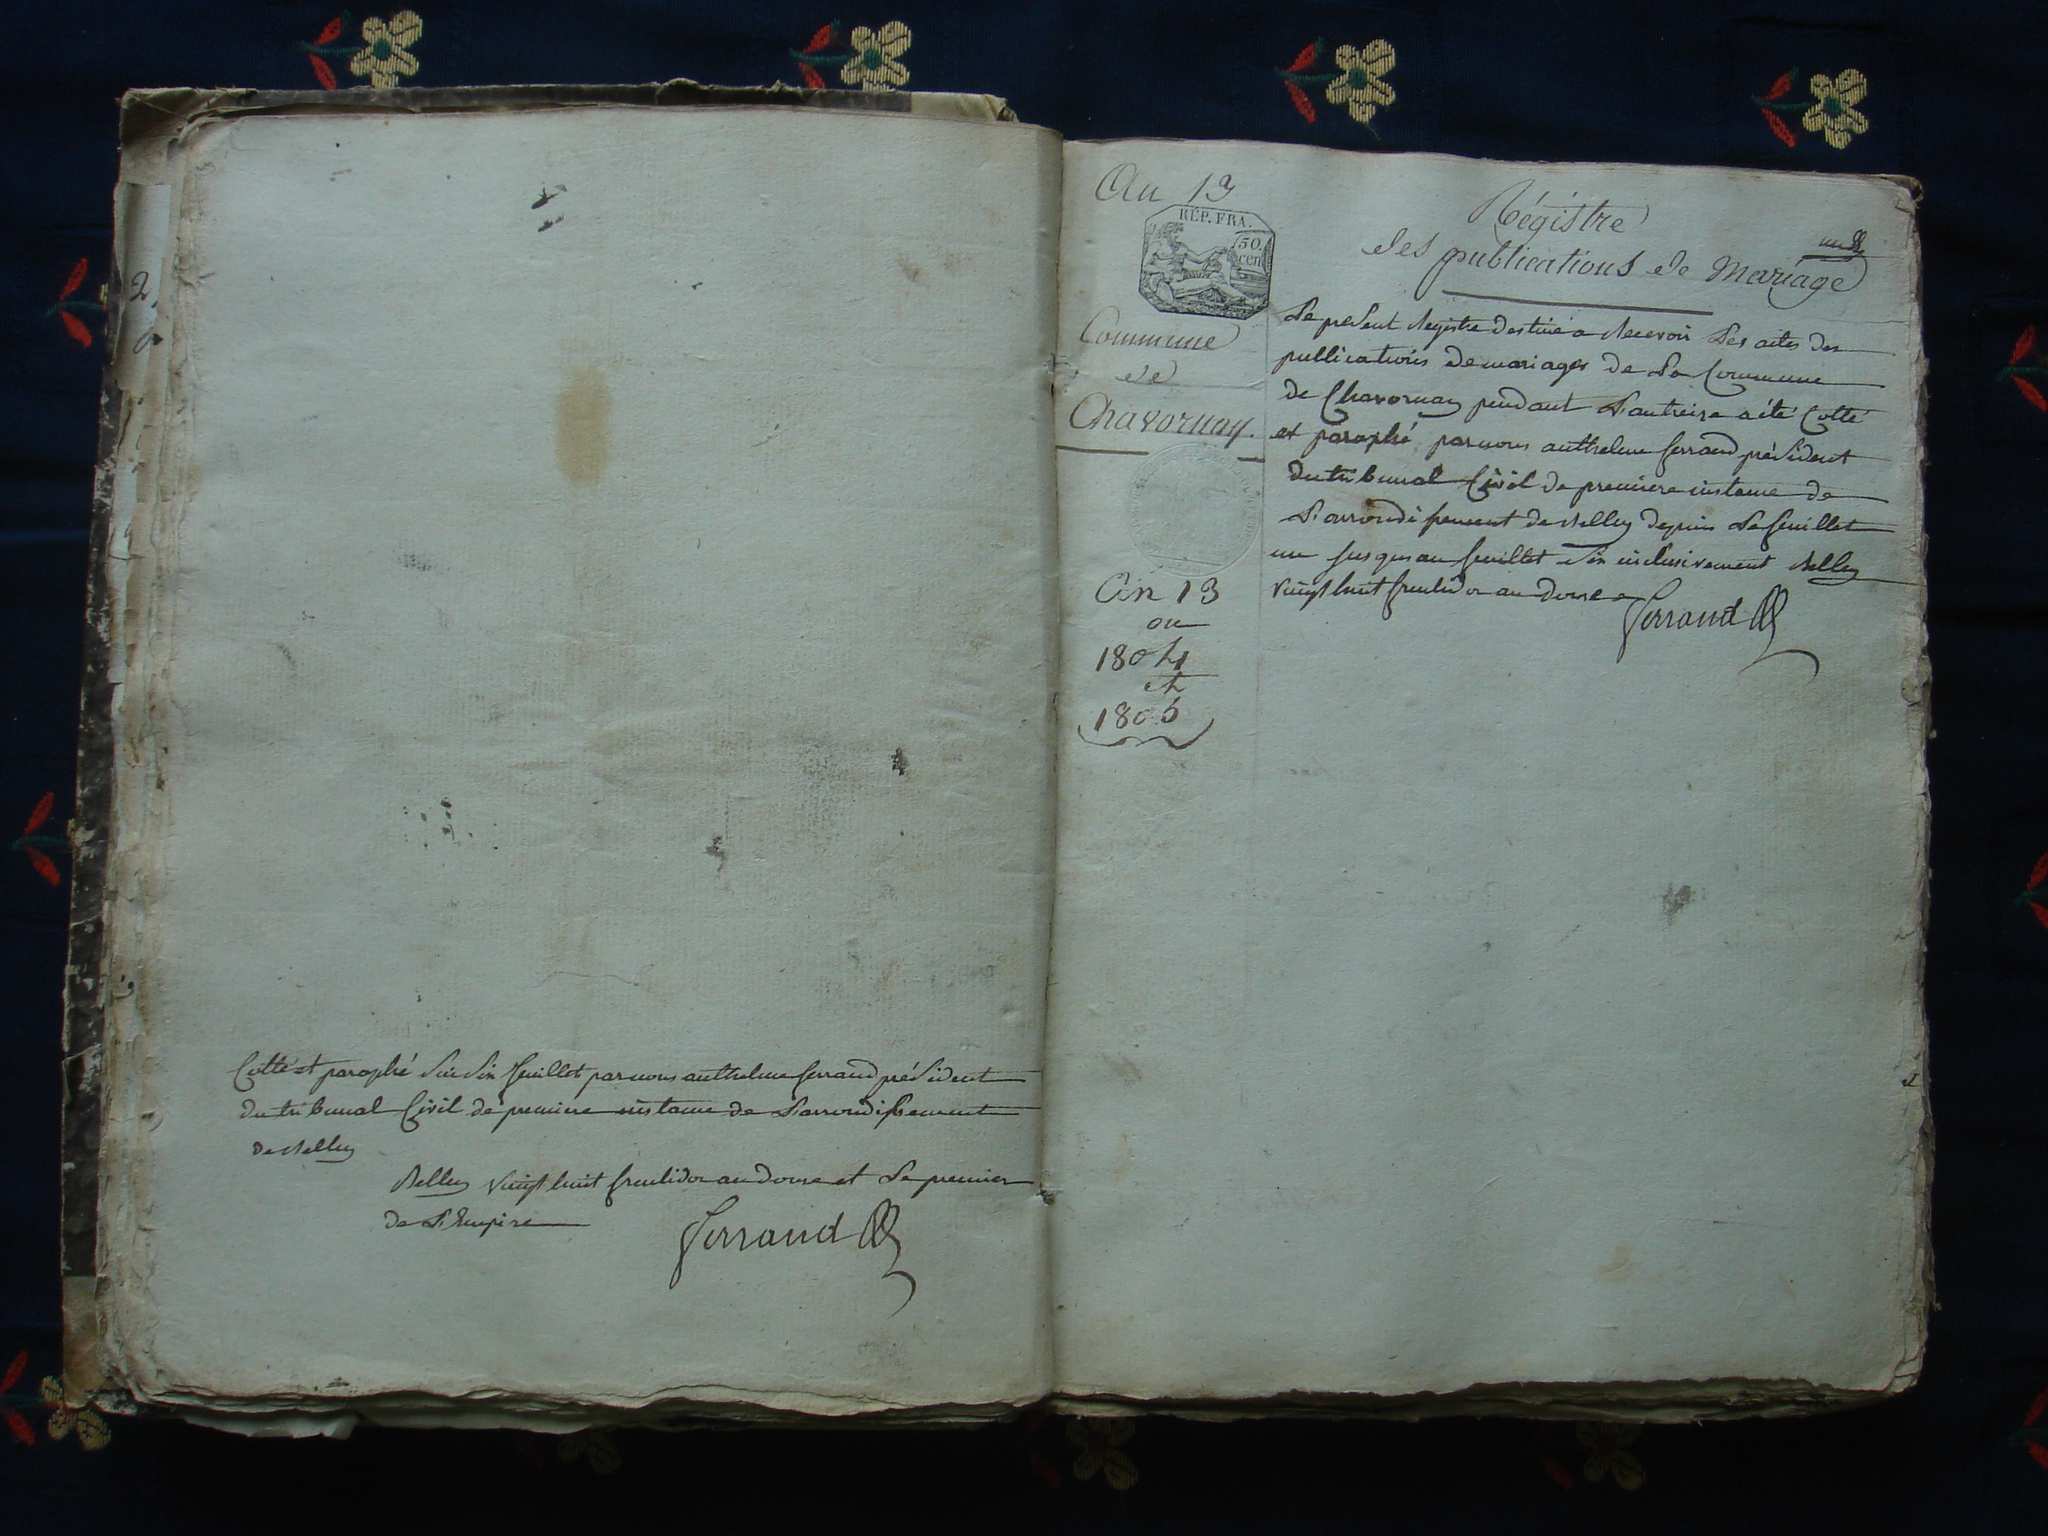 Cotté et paraphé Sur Six feuillet par nous anthelme ferrand président
du tribunal Civil de premiere instance de L'arrondissement
de Belley
Belley vingt huit fructidor an douze et Le premier
de L'Empire
Ferrand
An 13
RÉP. FRA.
50.
cen
Commune
de
Chavornay.
An 13
ou
1804
et
1805
Régistre
des publications de Mariage
un
Le present Registre destiné a Recevoir Les actes des
publications de mariages de La Commune
de Chavornay pendant L'an treize a été Cotté
et paraphé par nous anthelme ferrand président
du tribunal Civil de premiere instance de
L'arrondissement de Belley depuis Le feuillet
un jusques au feuillet Six inclusivement Belley
vingt huit fructidor an douze
Ferrand